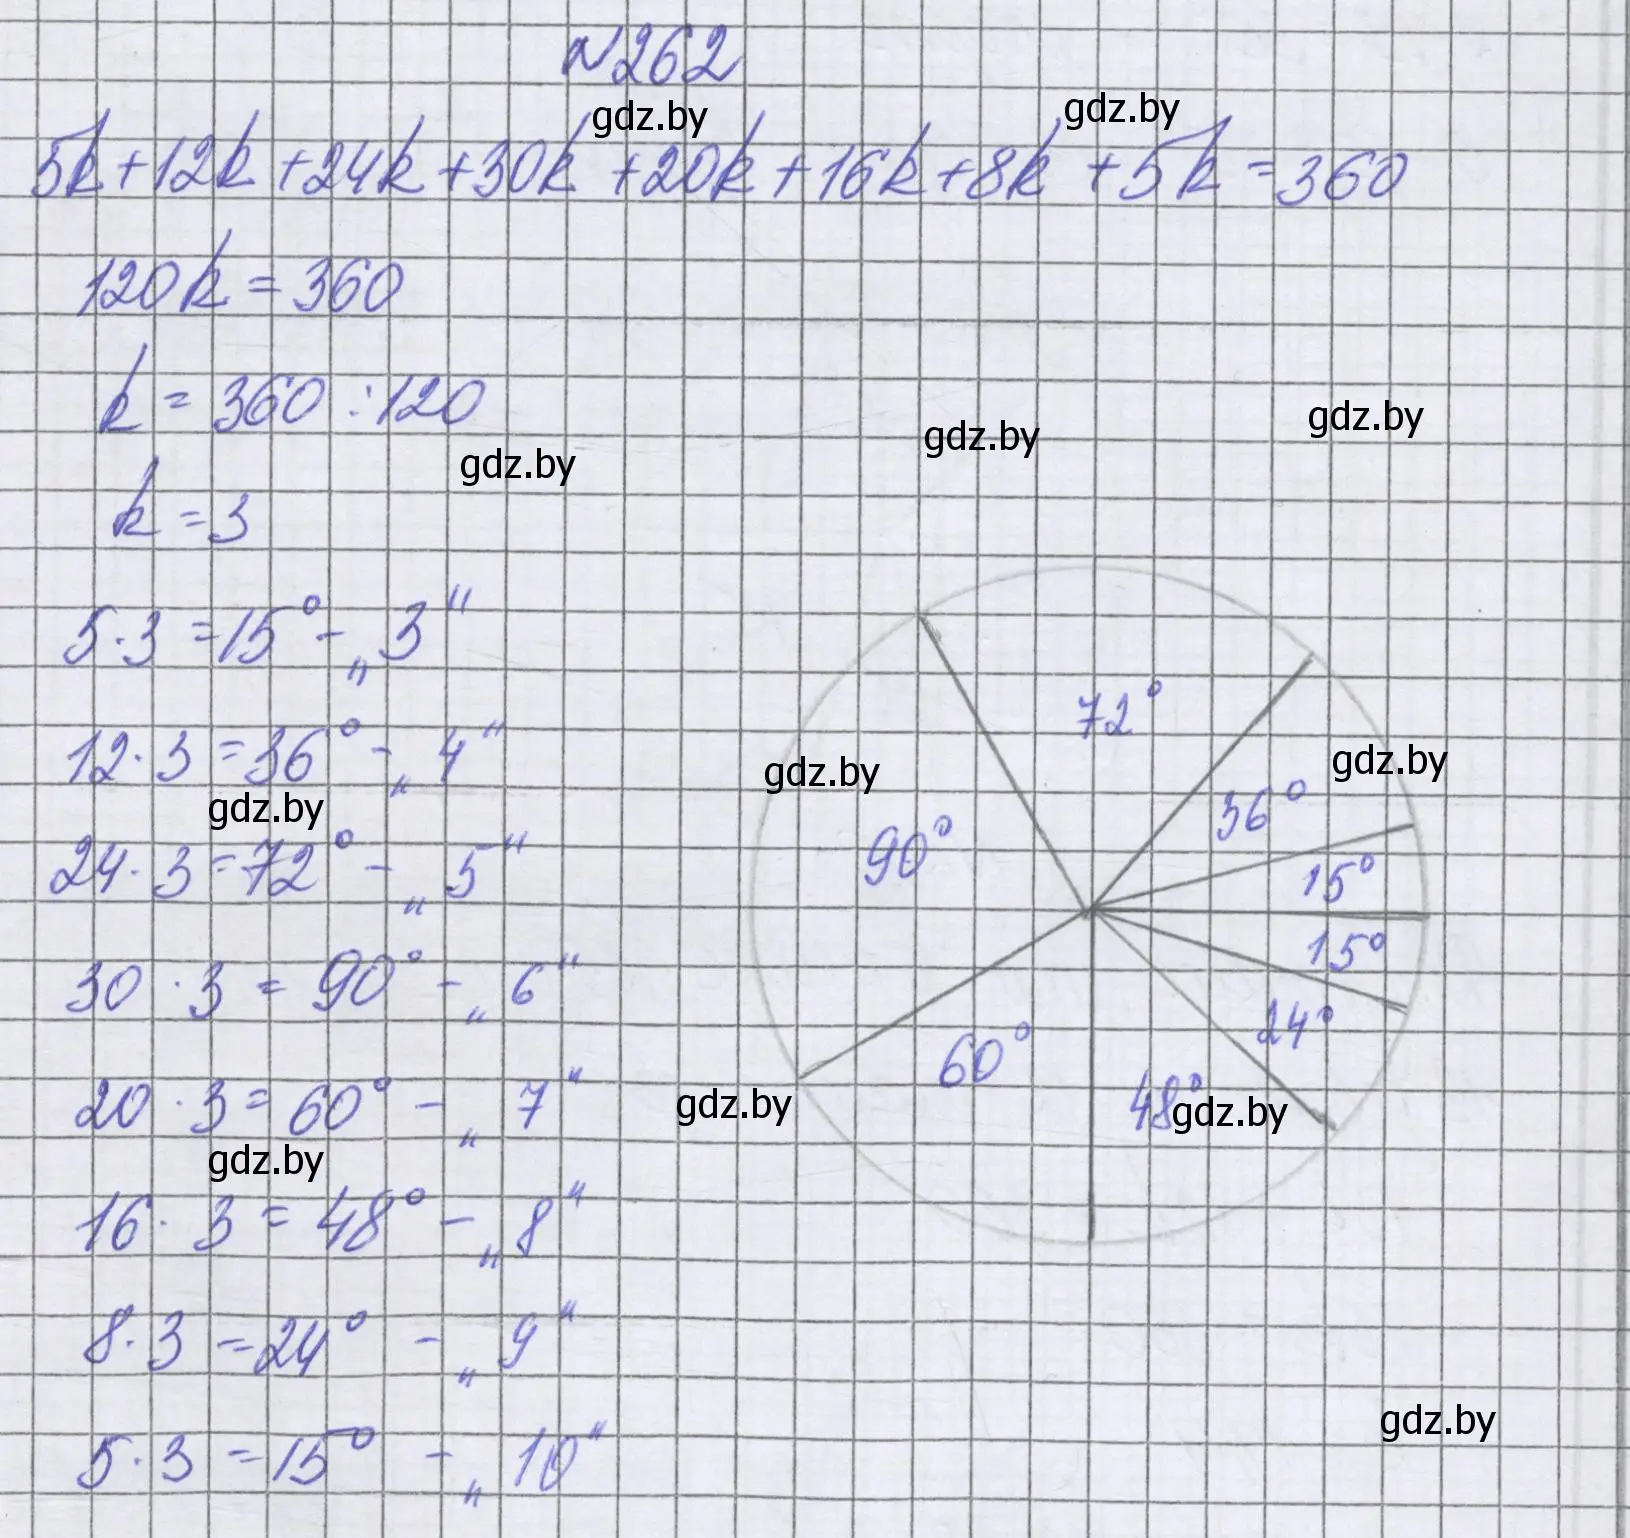 №262
gdz.by
gdz.by
5k+12k+24k+30k+20k+16k+8k+5k=360
120k=360
k=360:120
gdz.by
gdz.by
gdz.by
k=3
5·3=15°-„3"
12·3=36°-„4"
gdz.by
24·3=72°-„5"
30·3=90°-„6"
20·3=60°-„7"
gdz.by
16·3=48°-„8"
8·3=24°-„9"
5·3=15°-„10"
72°
gdz.by
gdz.by
36°
90°
15°
15°
24°
60°
48°
gdz.by
gdz.by
gdz.by